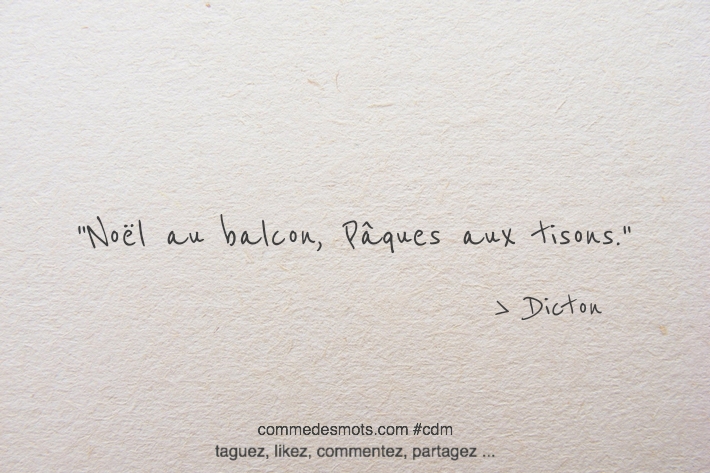 "Noël au balcon, Pâques aux tisons."
> Dicton
commedesmots.com #cdm
taguez, likez, commentez, partagez ...